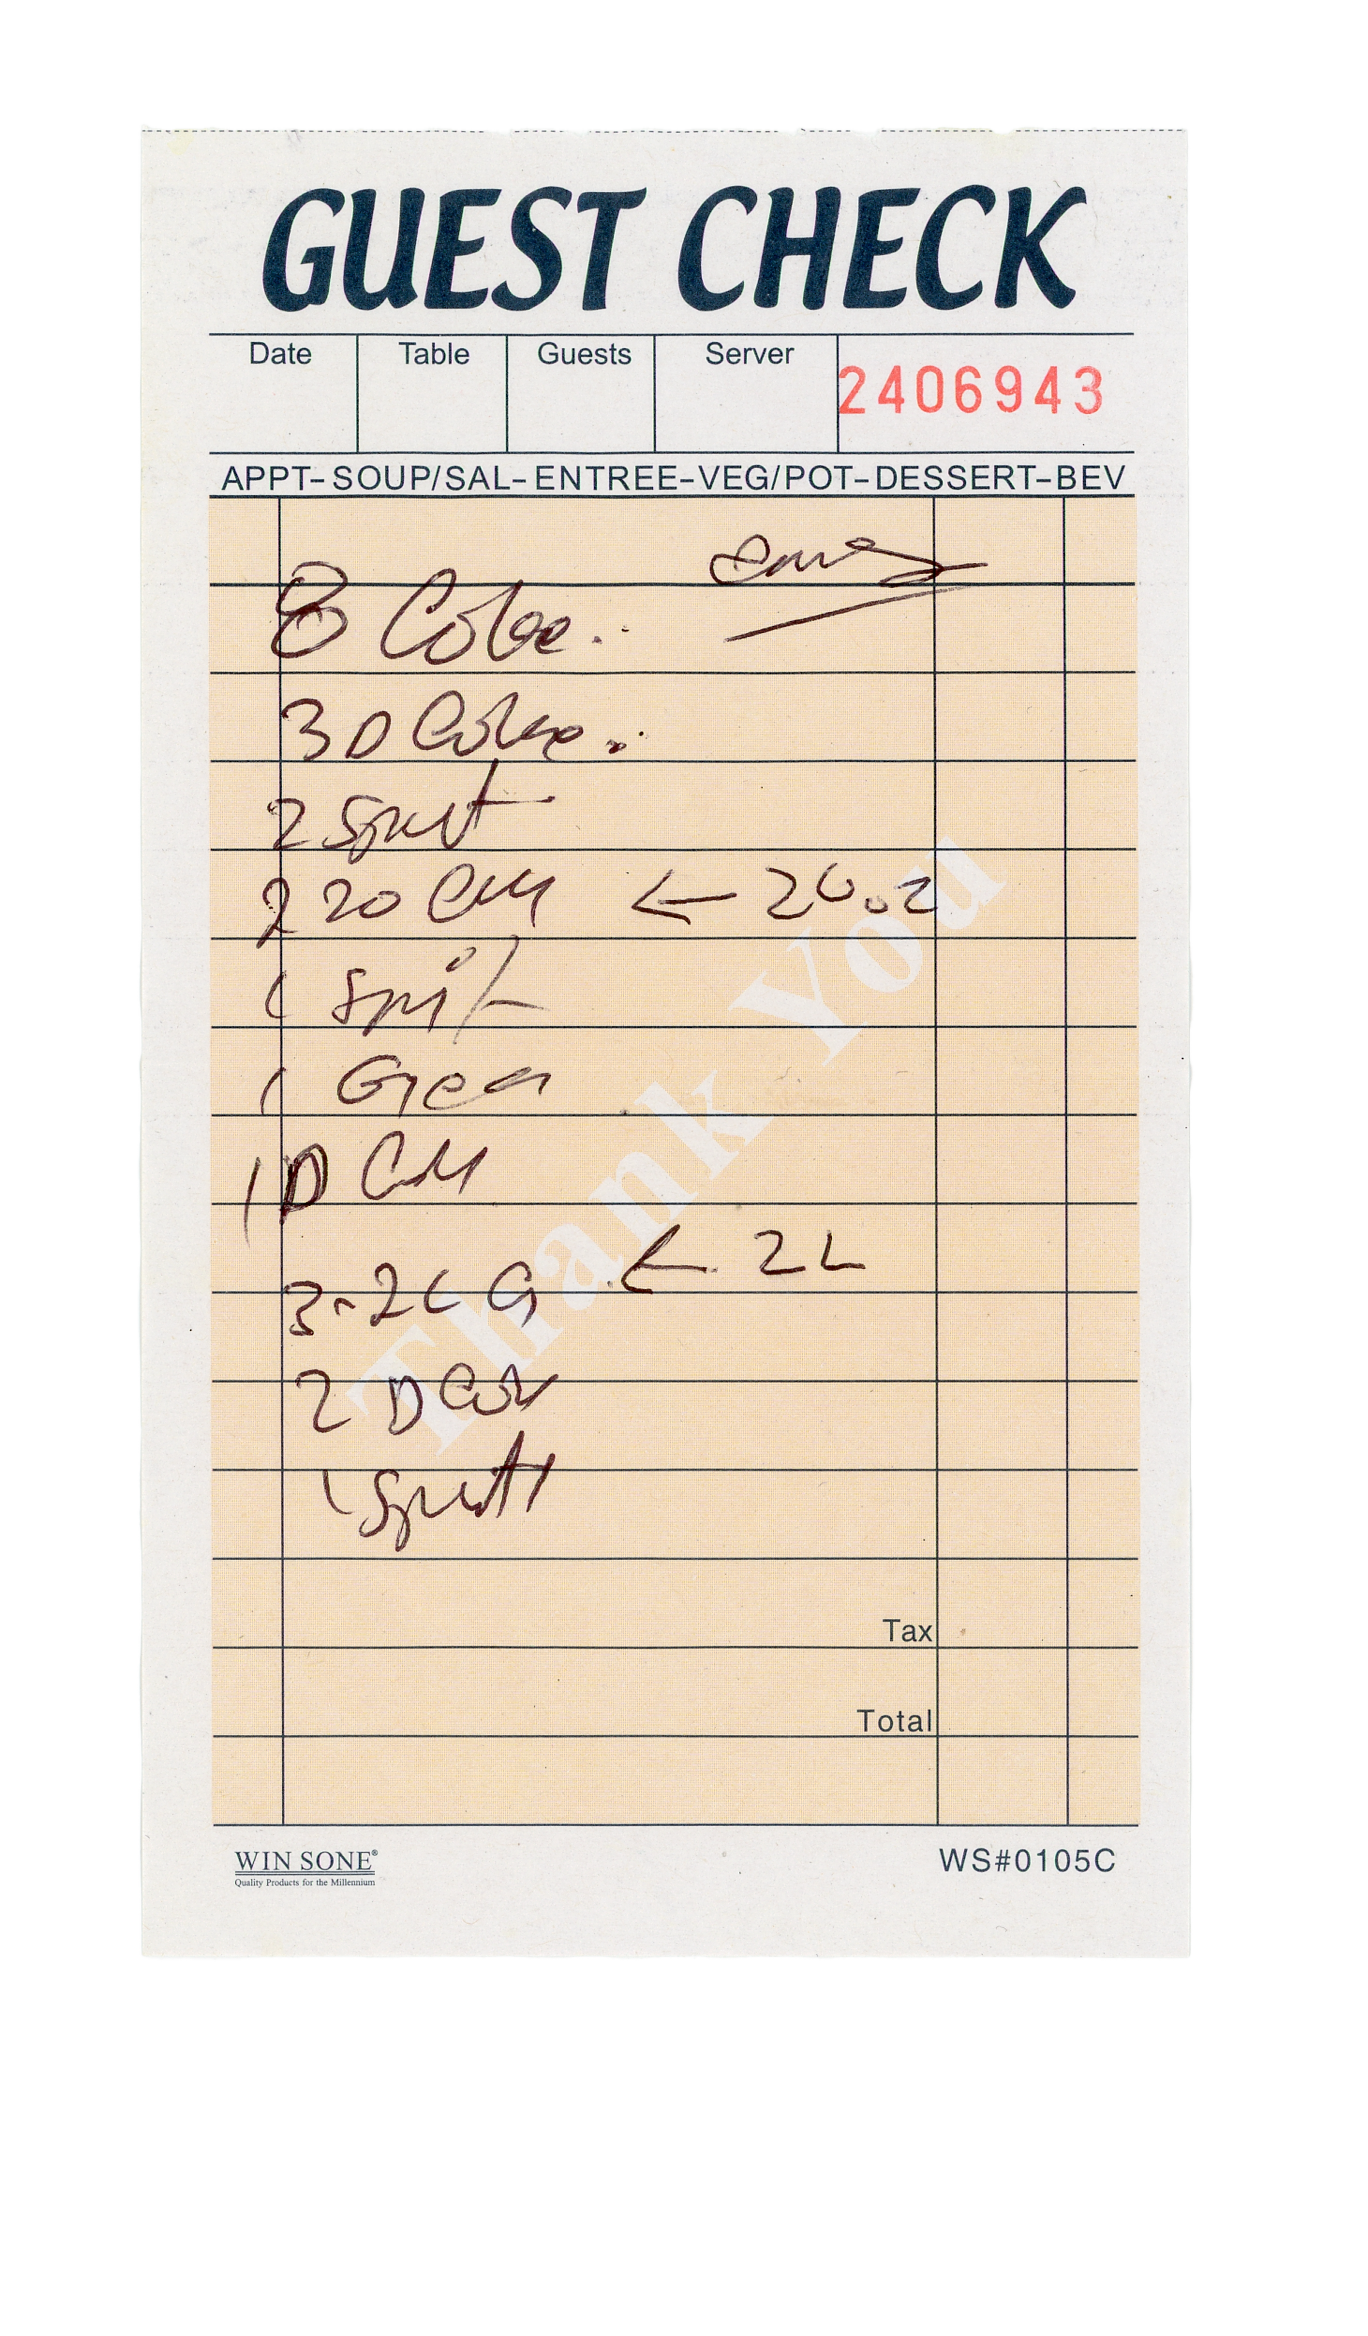 GUEST CHECK
Date Table Guests Server
2406943
APPT-SOUP/SAL-ENTREE-VEG/POT-DESSERT-BEV
8 Coke.
3 D Coke.
2 Sprit
2 20 ← 20.oz
1 Sprit
1 Gren
1 D
3-2L G ← 2L
2 D Cok
1 Sprit
Thank You
Tax
Total
WIN SONE®
Quality Products for the Millennium
WS#0105C